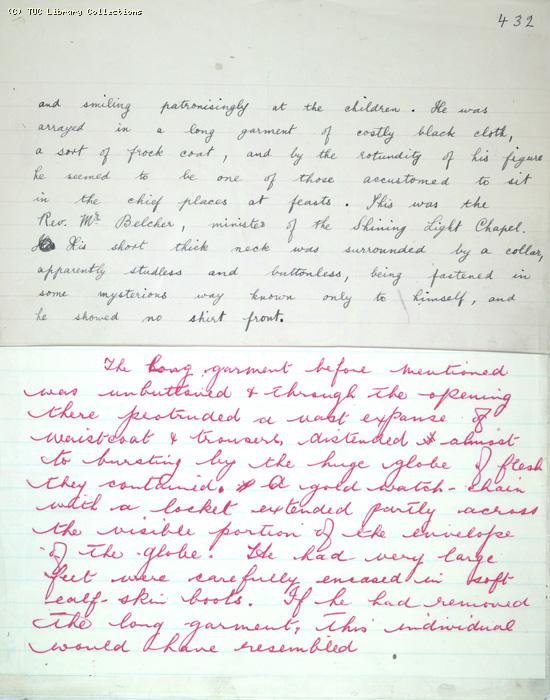 (C) TUC Library Collections
432
and smiling patronisingly at the children. He was
arrayed in a long garment of costly black cloth,
a sort of frock coat, and by the rotundity of his figure
he seemed to be one of those accustomed to sit
in the chief places at feasts. This was the
Rev. Mr Belcher, minister of the Shining Light Chapel.
His short thick neck was surrounded by a collar,
apparently studless and buttonless, being fastened in
some mysterious way known only to himself, and
he showed no shirt front.
The long garment before mentioned
was unbuttoned & through the opening
there protruded a vast expanse of
waistcoat & trousers, distended almost
to bursting by the huge globe of flesh
they contained. A gold watch-chain
with a locket extended partly across
the visible portion of the envelope
of the globe. He had very large
feet were carefully encased in soft
calf-skin boots. If he had removed
the long garment, this individual
would have resembled